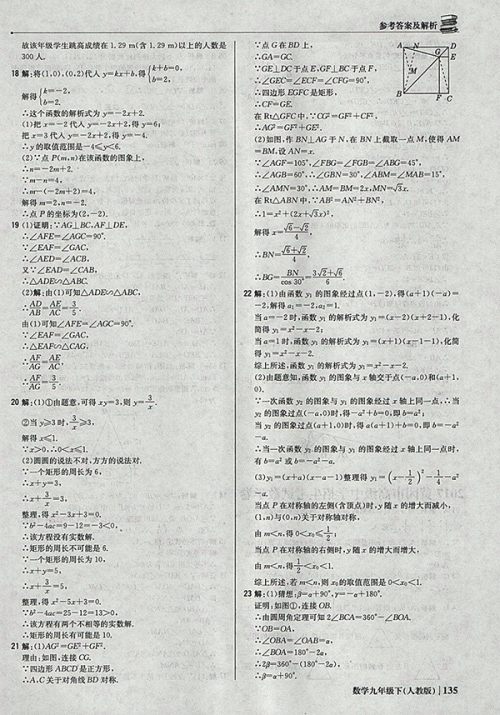 参考答案及解析
故该年级学生跳高成绩在1.29 m(含1.29 m)以上的人数是
300人.
18 解:将(1,0),(0,2)代入y=kx+b,得{k+b=0, b=2,
解得{k=-2, b=2.
∴这个函数的解析式为y=-2x+2.
(1)把x=-2代入y=-2x+2,得y=6;
把x=3代入y=-2x+2,得y=-4.
∴y的取值范围是-4≤y<6.
(2)∵点P(m,n)在该函数的图象上,
∴n=-2m+2.
∵m-n=4,
∴m-(-2m+2)=4,
解得m=2,n=-2.
∴点P的坐标为(2,-2).
19 (1)证明:∵AG⊥BC,AF⊥DE,
∴∠AFE=∠AGC=90°.
∵∠EAF=∠GAC,
∴∠AED=∠ACB.
又∵∠EAD=∠CAB,
∴△ADE∽△ABC.
(2)解:由(1)可知△ADE∽△ABC,
∴AD/AB=AE/AC=3/5.
由(1)可知∠AFE=∠AGC=90°.
∵∠EAF=∠GAC,
∴△EAF∽△CAG,
∴AF/AG=AE/AC,
∴AF/AG=3/5.
20 解:(1)①由题意,可得xy=3,则y=3/x.
②当y≥3时,3/x≥3,
解得x≤1.
∵x>0,∴0<x≤1.
(2)圆圆的说法不对,方方的说法对.
∵一个矩形的周长为6,
∴x+y=3,
∴x+3/x=3,
整理,得x²-3x+3=0.
∵b²-4ac=9-12=-3<0,
∴该方程没有实数解.
∴矩形的周长不可能是6.
∵一个矩形的周长为10,
∴x+y=5,
∴x+3/x=5,
整理,得x²-5x+3=0.
∵b²-4ac=25-12=13>0,
∴该方程有两个不相等的实数解.
∴矩形的周长有可能是10.
21 解:(1)AG²=GE²+GF².
理由:如图,连接CG.
∵四边形ABCD是正方形,
∴A,C关于对角线BD对称.
∵点G在BD上,
∴GA=GC.
∵GE⊥DC于点E,GF⊥BC于点F,
∴∠GEC=∠ECF=∠CFG=90°.
∴四边形EGFC是矩形,
∴CF=GE.
在Rt△GFC中,∵CG²=GF²+CF²,
∴AG²=GF²+GE².
A N D
G E
M
B F C
(2)如图,作BN⊥AG于N,在BN上截取一点M,使得AM
=BM.设AN=x.
∵∠AGF=105°,∠FBG=∠FGB=∠ABG=45°,
∴∠AGB=60°,∴∠GBN=30°,∠ABM=∠MAB=15°,
∴∠AMN=30°,∴AM=BM=2x,MN=√3x.
在Rt△ABN中,∵AB²=AN²+BN²,
∴1=x²+(2x+√3x)²,
解得x=(√6-√2)/4,
∴BN=(√6+√2)/4,
∴BG=BN/cos 30°=(3√2+√6)/6.
22 解:(1)由函数y₁的图象经过点(1,-2),得(a+1)(-a)=
-2,解得a₁=-2,a₂=1.
当a=-2时,函数y₁的解析式为y₁=(x-2)(x+2-1),化
简得y₁=x²-x-2;
当a=1时,函数y₁的解析式为y₁=(x+1)(x-1-1),化简
得y₁=x²-x-2.
综上所述,函数y₁的解析式为y₁=x²-x-2.
(2)由题意知,函数y₁的图象与x轴交于点(-a,0)和(a+1,
0).
∵一次函数y₂的图象与y₁的图象经过x轴上同一点,∴当
y₂的图象过点(-a,0)时,得-a²+b=0,即b=a²;
当y₂的图象过点(a+1,0)时,得a(a+1)+b=0,即b=-a²
-a.
∴当一次函数y₂的图象与y₁的图象经过x轴上同一点时,
有b=a²或b=-a²-a.
(3)y₁=(x+a)(x-a-1)整理得y₁=(x-1/2)²-1/4-a²
-a.
当点P在对称轴的左侧(含顶点)时,y随x的增大而减小,
(1,n)与(0,n)关于对称轴对称,
由m<n,得0<x₀≤1/2;
当点P在对称轴的右侧时,y随x的增大而增大,
由m<n,得1/2<x₀<1.
综上所述:若m<n,则x₀的取值范围是0<x₀<1.
23 解:(1)猜想:β=α+90°,γ=-α+180°.
证明,如图①,连接OB.
∴由圆周角定理可知2∠BCA=360°-∠BOA.
∵OB=OA,
∴∠OBA=∠OAB=α,
∴∠BOA=180°-2α,
∴2β=360°-(180°-2α),
∴β=α+90°.
数学九年级下(人教版) | 135